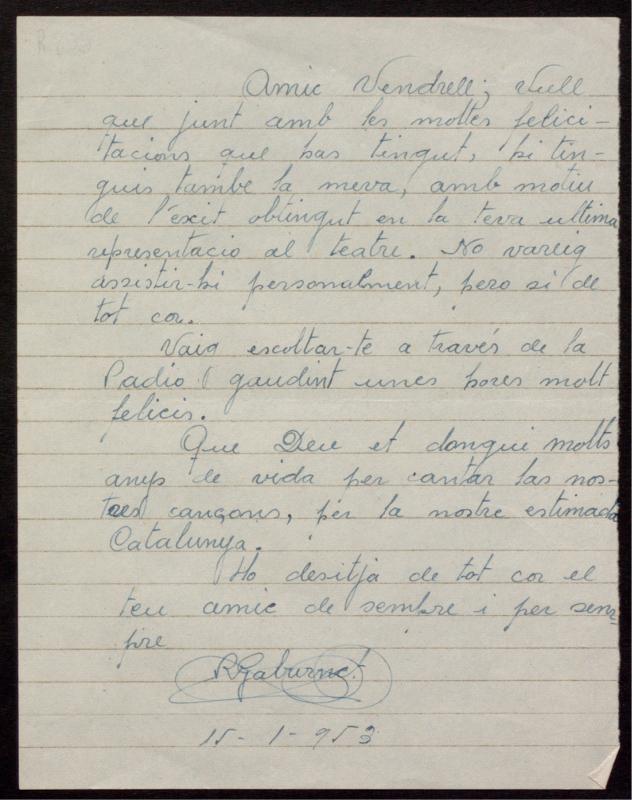 Amic Vendrell; Vull
que junt amb les moltes felici-
tacions que has tingut, hi tin-
guis també la meva, amb motiu
de l'éxit obtingut en la teva ultima
representacio al teatre. No vareig
assistir-hi personalment, pero si de
tot cor.
Vaig escoltar-te a través de la
Radio i gaudint unes hores molt
felicis.
Que Deu et dongui molts
anys de vida per cantar las nos-
tres cançons, per la nostre estimada
Catalunya.
Ho desitja de tot cor el
teu amic de sembre i per sem-
pre
R Gaburnet
15-1-953